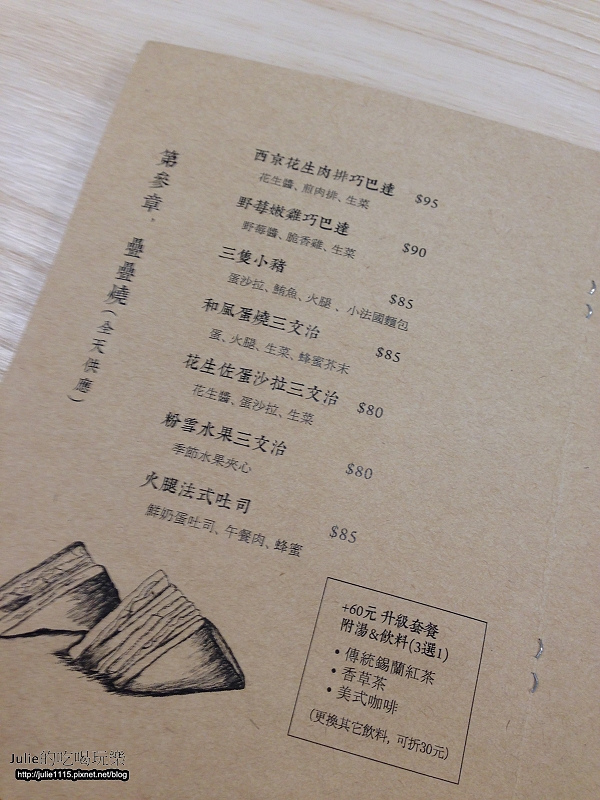 第參章，疊疊燒(全天供應)
西京花生肉排巧巴達 $95
花生醬、煎肉排、生菜
野莓嫩雞巧巴達 $90
野莓醬、脆香雞、生菜
三隻小豬 $85
蛋沙拉、鮪魚、火腿、小法國麵包
和風蛋燒三文治 $85
蛋、火腿、生菜、蜂蜜芥末
花生佐蛋沙拉三文治 $80
花生醬、蛋沙拉、生菜
粉雪水果三文治 $80
季節水果夾心
火腿法式吐司 $85
鮮奶蛋吐司、午餐肉、蜂蜜
+60元 升級套餐
附湯&飲料(3選1)
• 傳統錫蘭紅茶
• 香草茶
• 美式咖啡
(更換其它飲料, 可折30元)
Julie的吃喝玩樂
http://julie1115.pixnet.net/blog